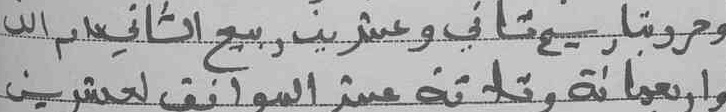 وحرر بتاريخ ثاني وعشرين ربيع الثاني عام الف
واربعمائة وثلاثة عشر الموافق لعشرين